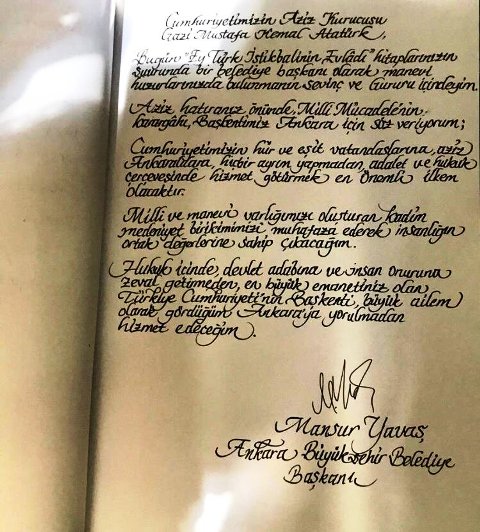 Cumhuriyetimizin Aziz Kurucusu
Gazi Mustafa Kemal Atatürk,
Bugün "Ey Türk İstikbalinin Evladı" hitaplarınızın
şuurunda bir belediye başkanı olarak manevi
huzurlarınızda bulunmanın sevinç ve gururu içindeyim.
Aziz hatıranız önünde, Milli Mücadele'nin
karargâhı, Başkentimiz Ankara için söz veriyorum;
Cumhuriyetimizin hür ve eşit vatandaşlarına, aziz
Ankaralılara, hiçbir ayrım yapmadan, adalet ve hukuk
çerçevesinde hizmet götürmek en önemli ilkem
olacaktır.
Milli ve manevi varlığımızı oluşturan kadim
medeniyet birikimimizi muhafaza ederek insanlığın
ortak değerlerine sahip çıkacağım.
Hukuk içinde, devlet adabına ve insan onuruna
zeval getirmeden, en büyük emanetiniz olan
Türkiye Cumhuriyeti'nin Başkenti, büyük ailem
olarak gördüğüm Ankara'ya yorulmadan
hizmet edeceğim.
Mansur Yavaş
Ankara Büyükşehir Belediye
Başkanı